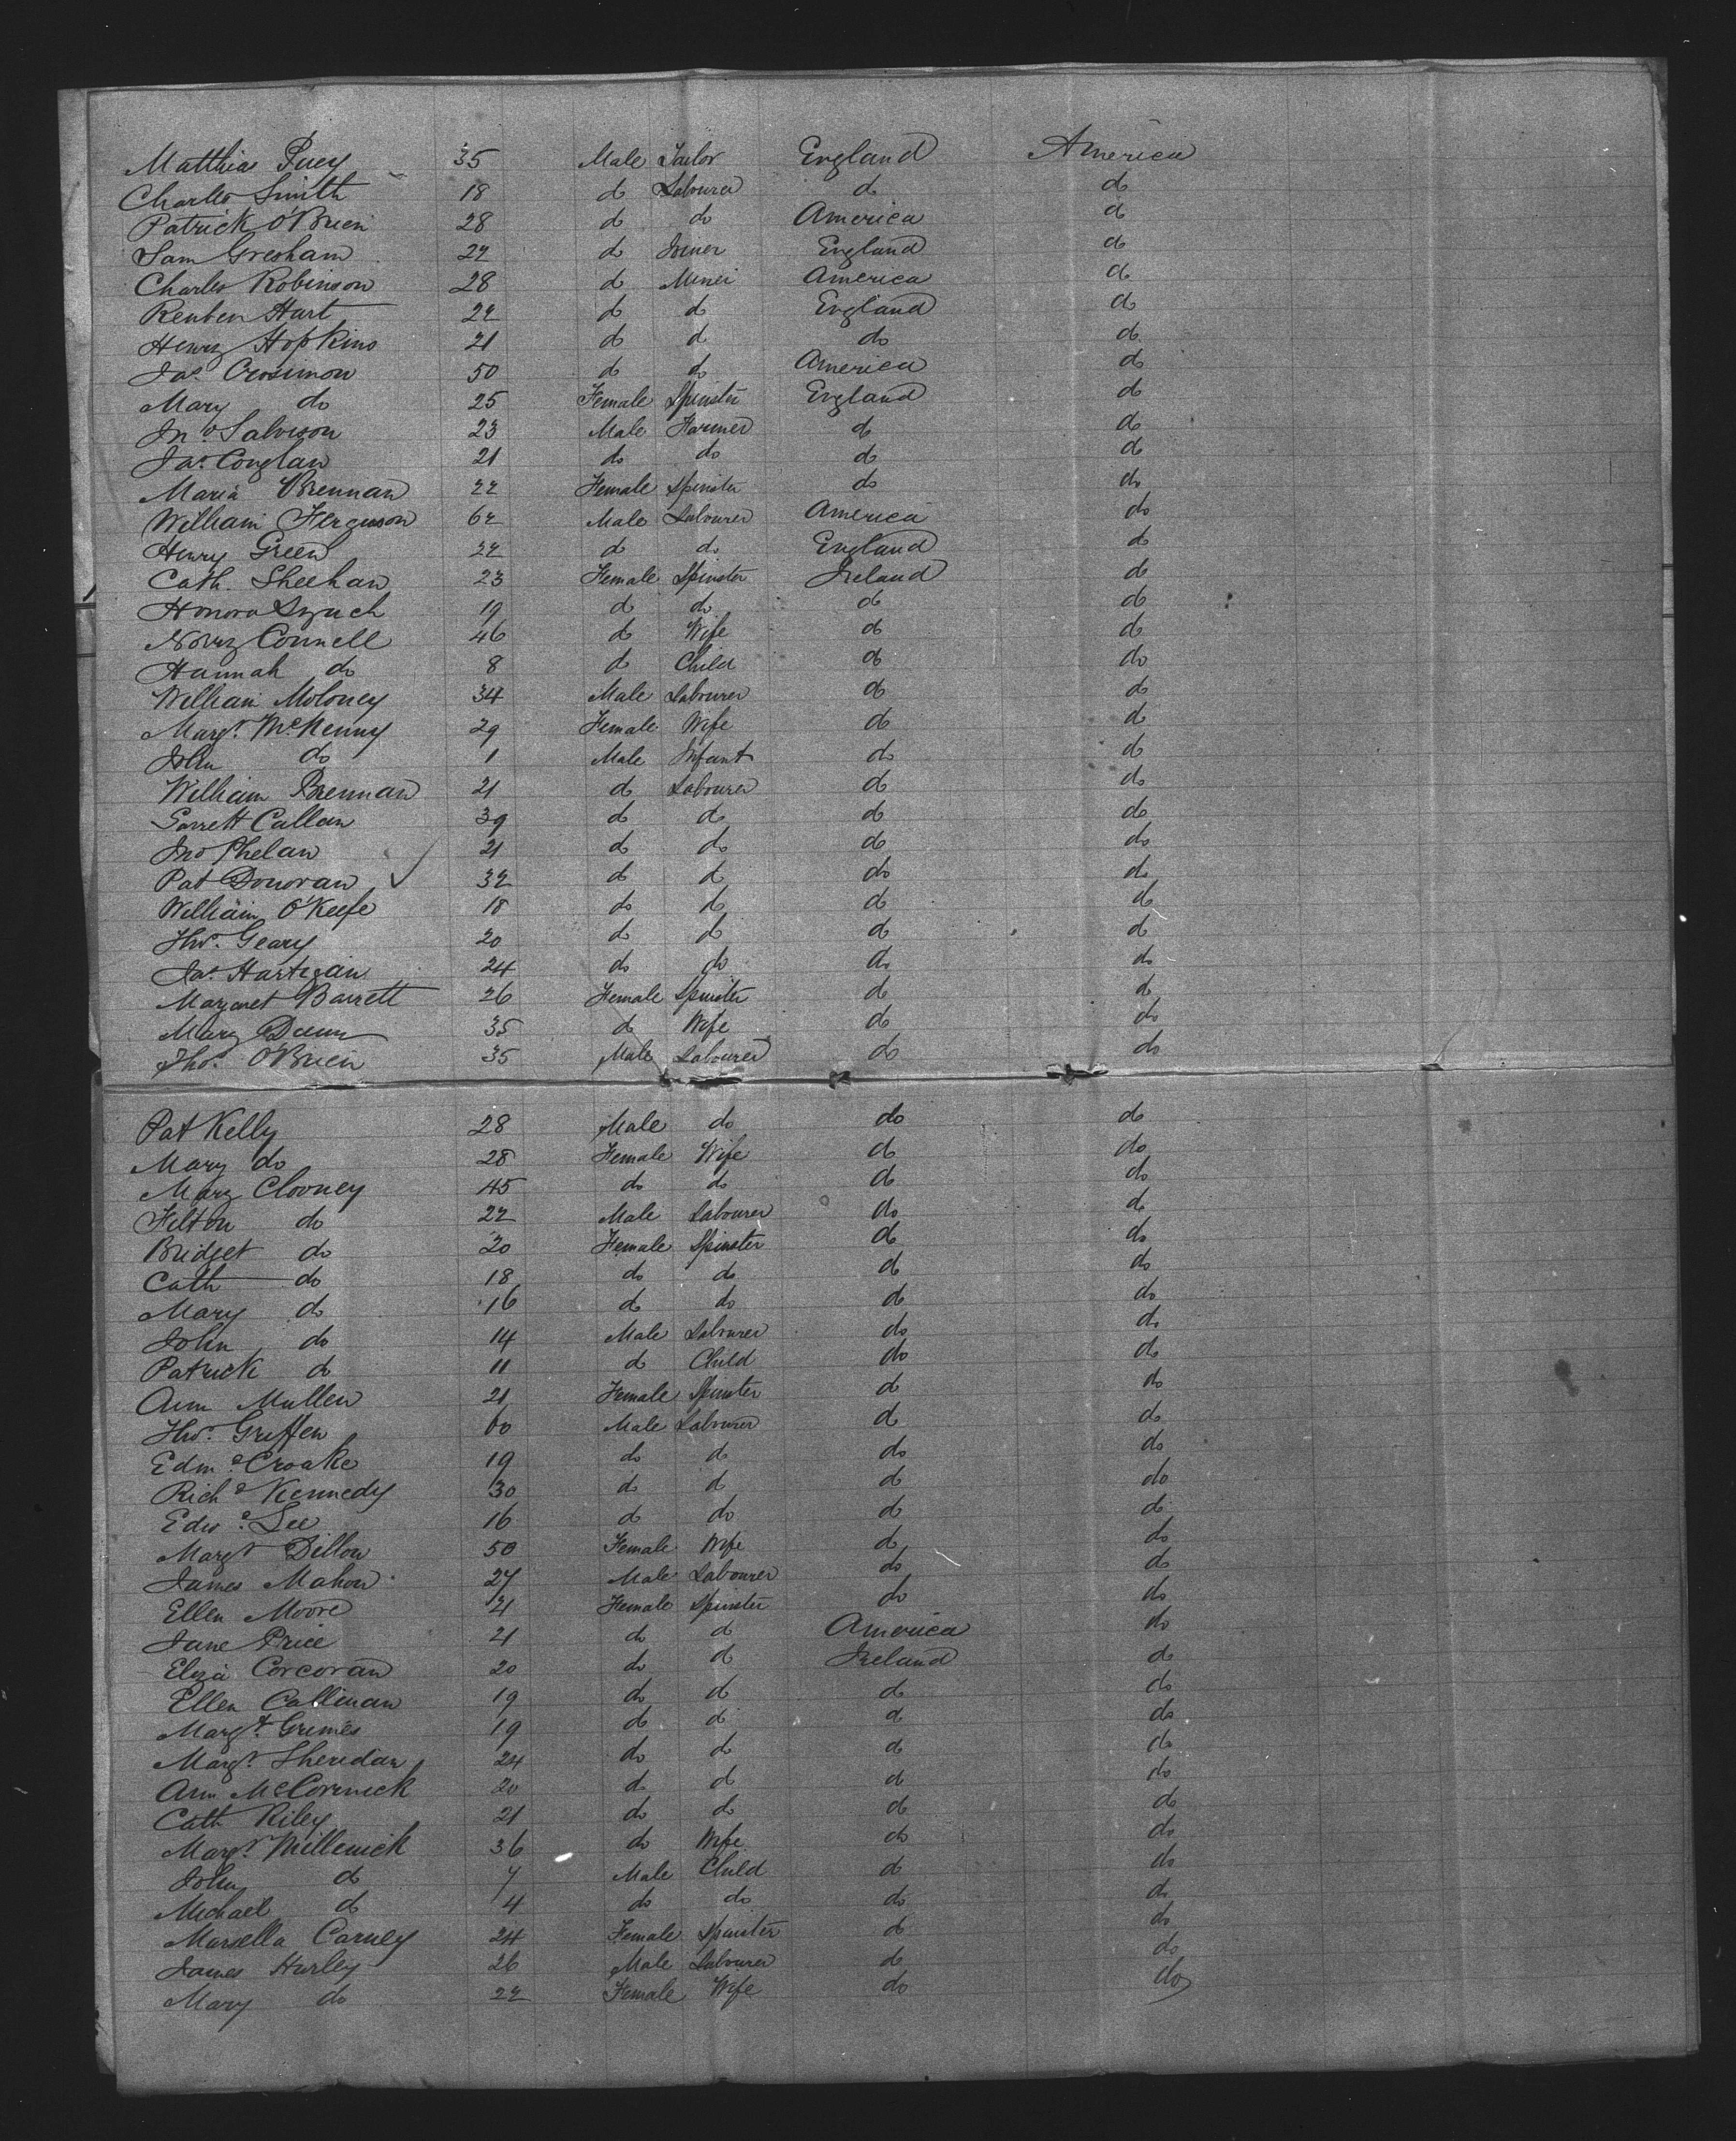 Matthias Puey 35 Male Tailor England America
Charles Smith 18 do Labourer do do
Patrick O'Brien 28 do do America do
Sam Gresham 22 do Joiner England do
Charles Robinson 28 do Miner America do
Reuben Hart 22 do do England do
Henry Hopkins 21 do do do do
Jas. Crosimon 50 do do America do
Mary do 25 Female Spinster England do
Jno Salvison 23 Male Farmer do do
Jas. Conglan 21 do do do do
Maria Brennan 22 Female Spinster do do
William Ferguson 62 Male Labourer America do
Henry Green 22 do do England do
Cath. Sheehan 23 Female Spinster Ireland do
Honora Lynch 19 do do do do
Norry Connell 46 do Wife do do
Hannah do 8 do Child do do
William Moloney 34 Male Labourer do do
Margt. McKenny 29 Female Wife do do
John do 1 Male Infant do do
William Brennan 21 do Labourer do do
Garrett Callan 39 do do do do
Jno Phelan 21 do do do do
Pat Donovan 32 do do do do
William O'Keefe 18 do do do do
Tho. Geary 20 do do do do
Jas. Hartigan 24 do do do do
Margaret Barrett 26 Female Spinster do do
Mary Dunn 35 do Wife do do
Tho. O'Brien 35 Male Labourer do do
Pat Kelly 28 Male do do do
Mary do 28 Female Wife do do
Mary Clooney 45 do do do do
Filton do 22 Male Labourer do do
Bridget do 20 Female Spinster do do
Cath do 18 do do do do
Mary do 16 do do do do
John do 14 Male Labourer do do
Patrick do 11 do Child do do
Ann Mullen 21 Female Spinster do do
Tho. Griffen 60 Male Labourer do do
Edmd. Croake 19 do do do do
Richd Kennedy 30 do do do do
Edwd. Lee 16 do do do do
Margt Dillon 50 Female Wife do do
James Mahon 27 Male Labourer do do
Ellen Moore 21 Female Spinster do do
Jane Price 21 do do America do
Eliza Corcoran 20 do do Ireland do
Ellen Callinan 19 do do do do
Margt. Grimes 19 do do do do
Margt. Sheridan 24 do do do do
Ann McCormick 20 do do do do
Cath Riley 21 do do do do
Margt. Millerick 36 do Wife do do
John do 7 Male Child do do
Michael do 4 do do do do
Marsella Carney 24 Female Spinster do do
James Hurley 26 Male Labourer do do
Mary do 22 Female Wife do do